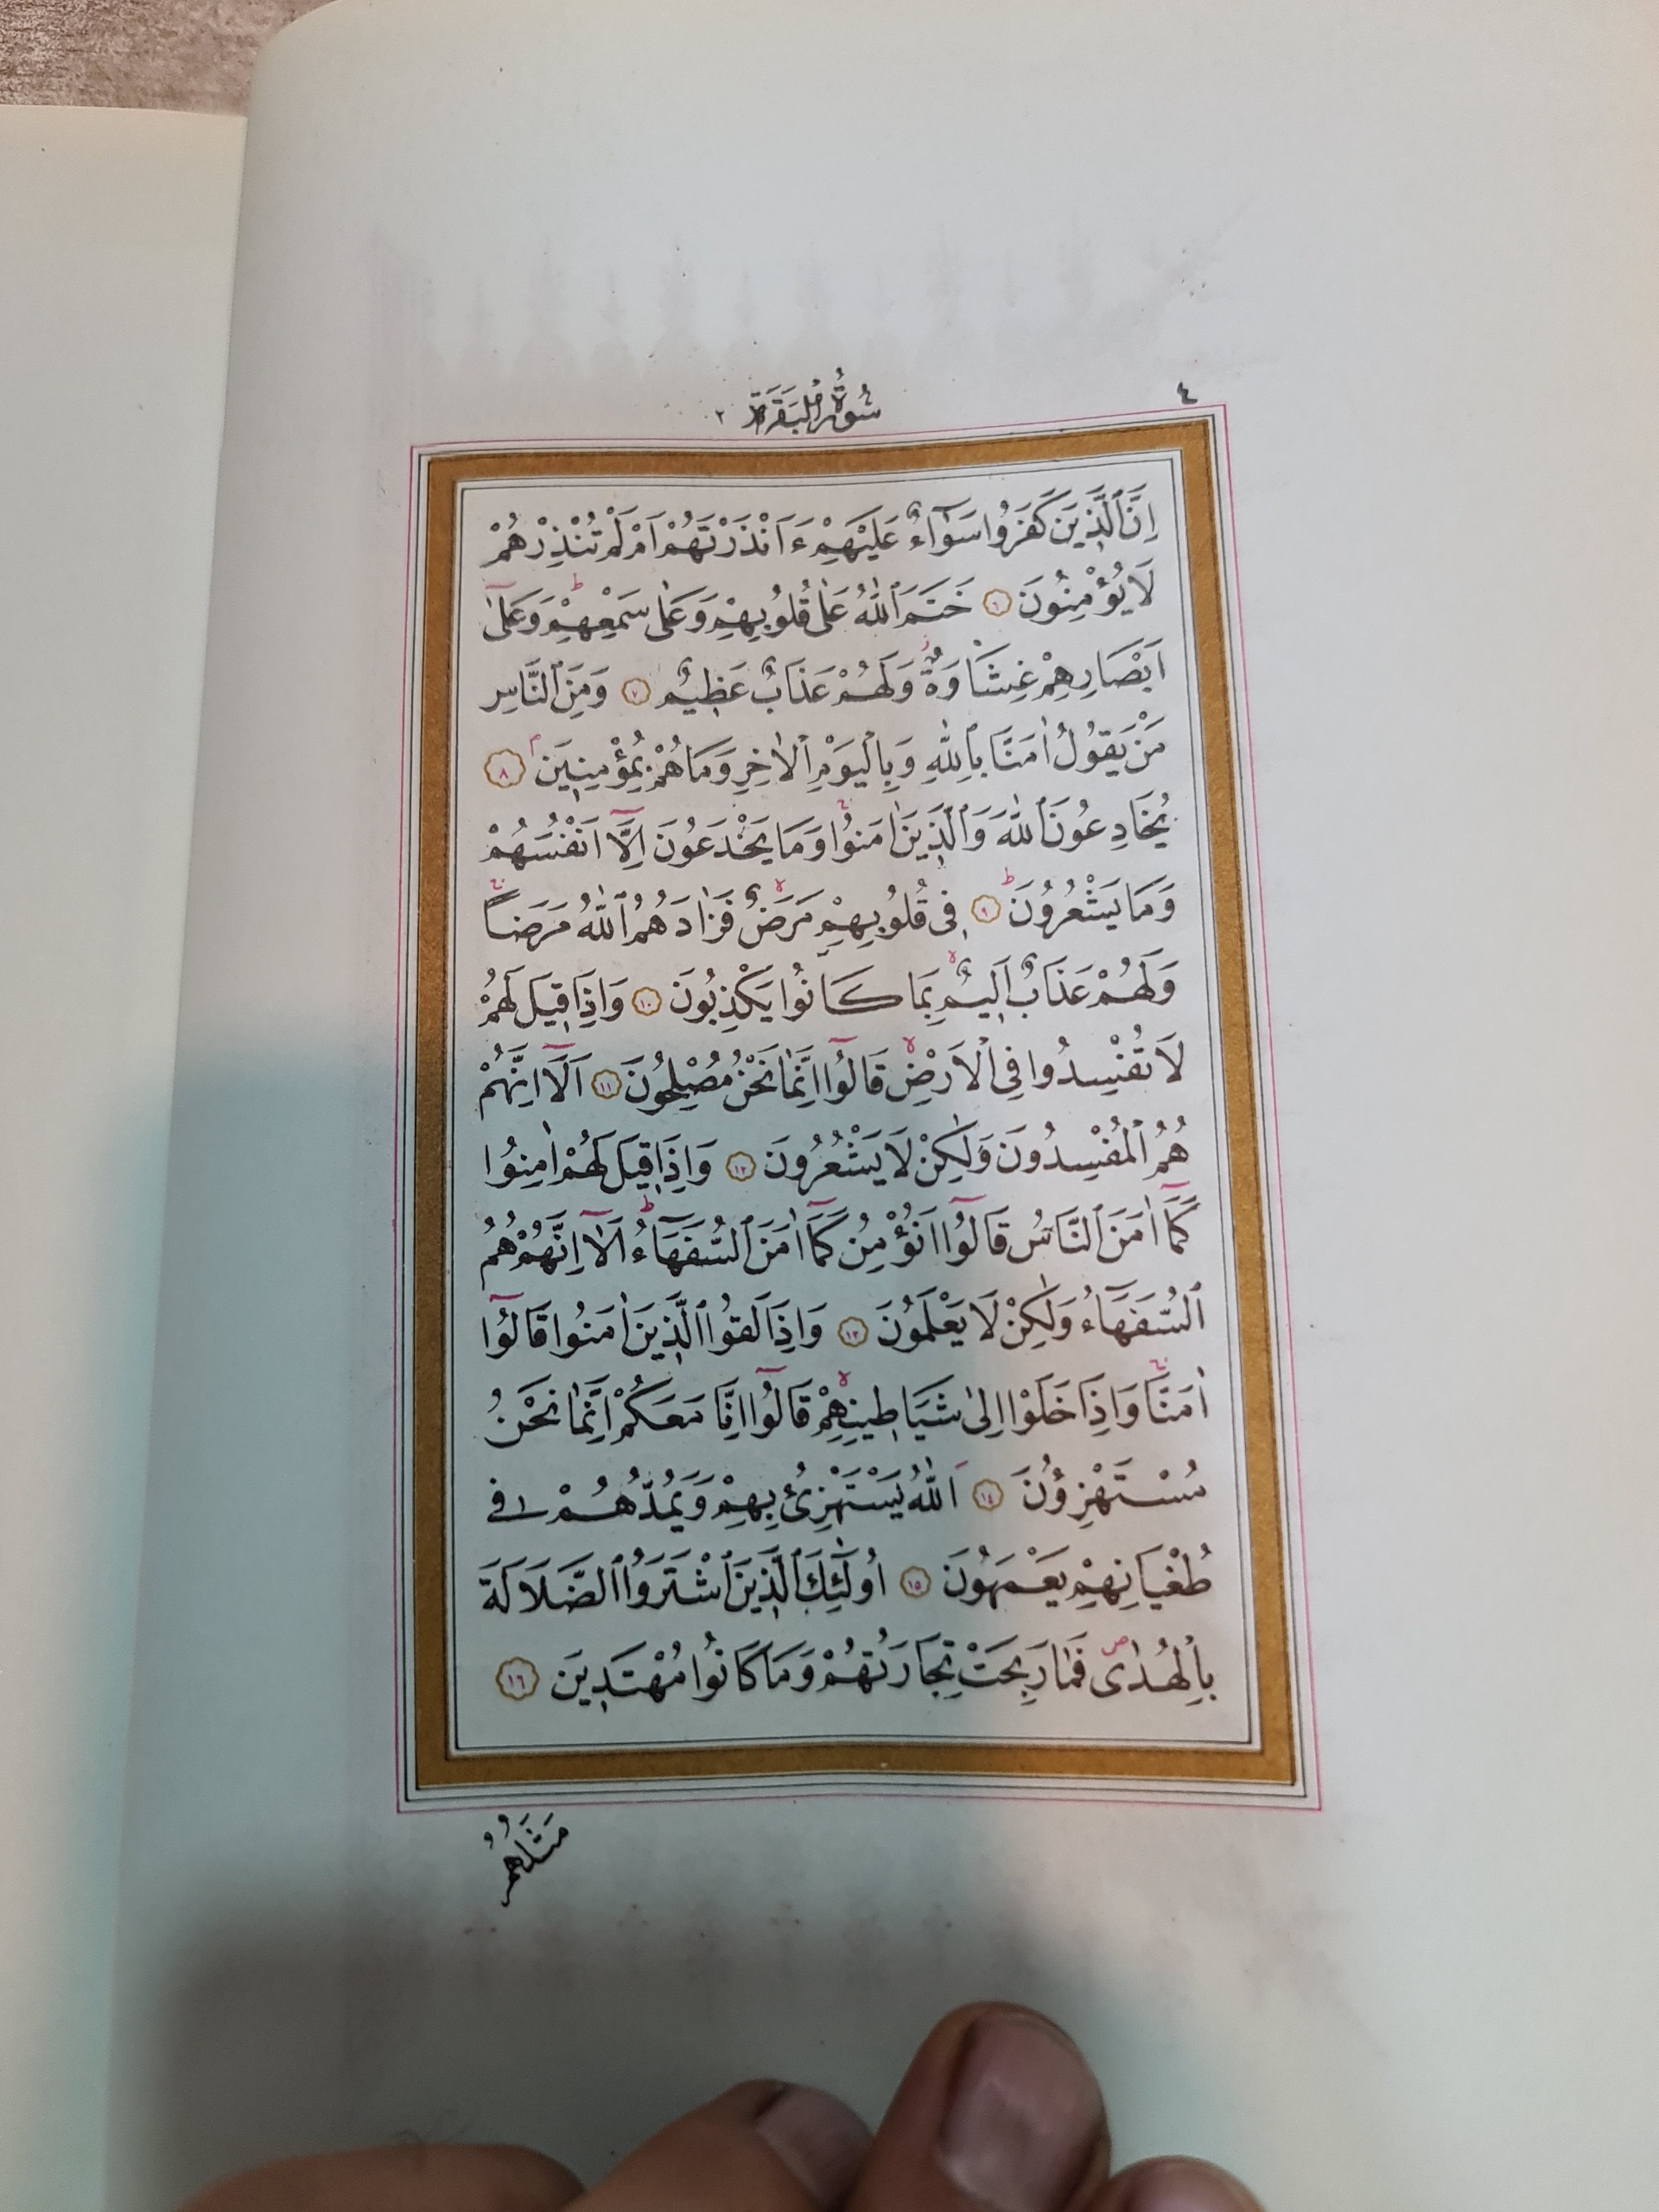 ٤
سُورَةُ الْبَقَرَةِ ٢
اِنَّ ٱلَّذِينَ كَفَرُوا سَوَٓاءٌ عَلَيْهِمْ ءَاَنْذَرْتَهُمْ اَمْ لَمْ تُنْذِرْهُمْ
لَا يُؤْمِنُونَ ٦ خَتَمَ ٱللّٰهُ عَلٰى قُلُوبِهِمْ وَعَلٰى سَمْعِهِمْ ۜ وَعَلٰٓى
اَبْصَارِهِمْ غِشَاوَةٌ ۘ وَلَهُمْ عَذَابٌ عَظِيمٌ ٧ وَمِنَ ٱلنَّاسِ
مَنْ يَقُولُ اٰمَنَّا بِٱللّٰهِ وَبِٱلْيَوْمِ ٱلْاٰخِرِ وَمَا هُمْ بِمُؤْمِنِينَ ۢ ٨
يُخَادِعُونَ ٱللّٰهَ وَٱلَّذِينَ اٰمَنُوا ۚ وَمَا يَخْدَعُونَ اِلَّٓا اَنْفُسَهُمْ
وَمَا يَشْعُرُونَ ۜ ٩ فِى قُلُوبِهِمْ مَرَضٌ ۙ فَزَادَهُمُ ٱللّٰهُ مَرَضًا ۚ
وَلَهُمْ عَذَابٌ اَلِيمٌ ۙ بِمَا كَانُوا يَكْذِبُونَ ١٠ وَاِذَا قِيلَ لَهُمْ
لَا تُفْسِدُوا فِى ٱلْاَرْضِ ۙ قَالُٓوا اِنَّمَا نَحْنُ مُصْلِحُونَ ١١ اَلَٓا اِنَّهُمْ
هُمُ ٱلْمُفْسِدُونَ وَلٰكِنْ لَا يَشْعُرُونَ ١٢ وَاِذَا قِيلَ لَهُمْ اٰمِنُوا
كَمَٓا اٰمَنَ ٱلنَّاسُ قَالُٓوا اَنُؤْمِنُ كَمَٓا اٰمَنَ ٱلسُّفَهَٓاءُ ۜ اَلَٓا اِنَّهُمْ هُمُ
ٱلسُّفَهَٓاءُ وَلٰكِنْ لَا يَعْلَمُونَ ١٣ وَاِذَا لَقُوا ٱلَّذِينَ اٰمَنُوا قَالُٓوا
اٰمَنَّا ۚ وَاِذَا خَلَوْا اِلٰى شَيَاطِينِهِمْ ۙ قَالُٓوا اِنَّا مَعَكُمْ اِنَّمَا نَحْنُ
مُسْتَهْزِؤُنَ ١٤ اَللّٰهُ يَسْتَهْزِئُ بِهِمْ وَيَمُدُّهُمْ فِى
طُغْيَانِهِمْ يَعْمَهُونَ ١٥ اُولٰٓئِكَ ٱلَّذِينَ ٱشْتَرَوُا ٱلضَّلَالَةَ
بِٱلْهُدٰى ۖ فَمَا رَبِحَتْ تِجَارَتُهُمْ وَمَا كَانُوا مُهْتَدِينَ ١٦
مَثَلُهُمْ